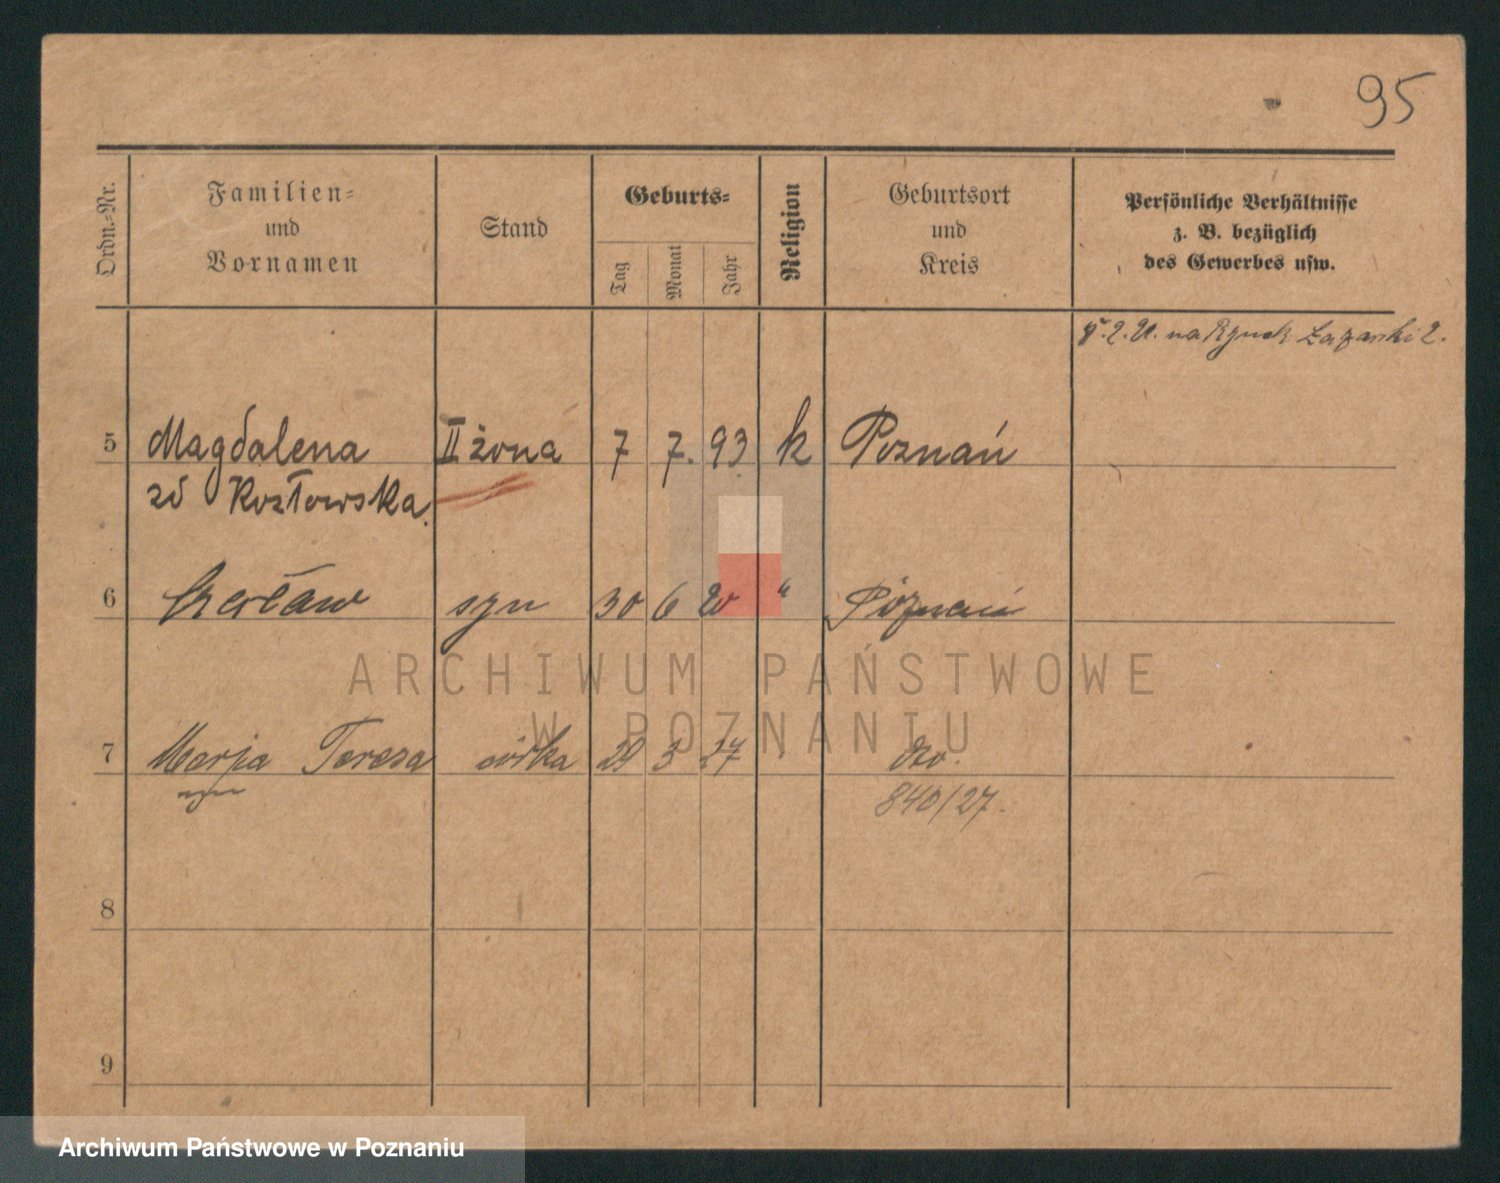 95
Ordn.-Nr.
Familien-
und
Vornamen
Stand
Geburts-
Tag
Monat
Jahr
Religion
Geburtsort
und
Kreis
Persönliche Verhältnisse
z. B. bezüglich
des Gewerbes usw.
na Rynek Łazarski 2.
5 Magdalena II żona 7 7. 93 k Poznań
zd Kozłowska.
6 Czesław syn 30 6 20 " Poznań
ARCHIWUM PAŃSTWOWE
W POZNANIU
7 Marja Teresa córka 29 3 27 dto.
840/27.
8
9
Archiwum Państwowe w Poznaniu